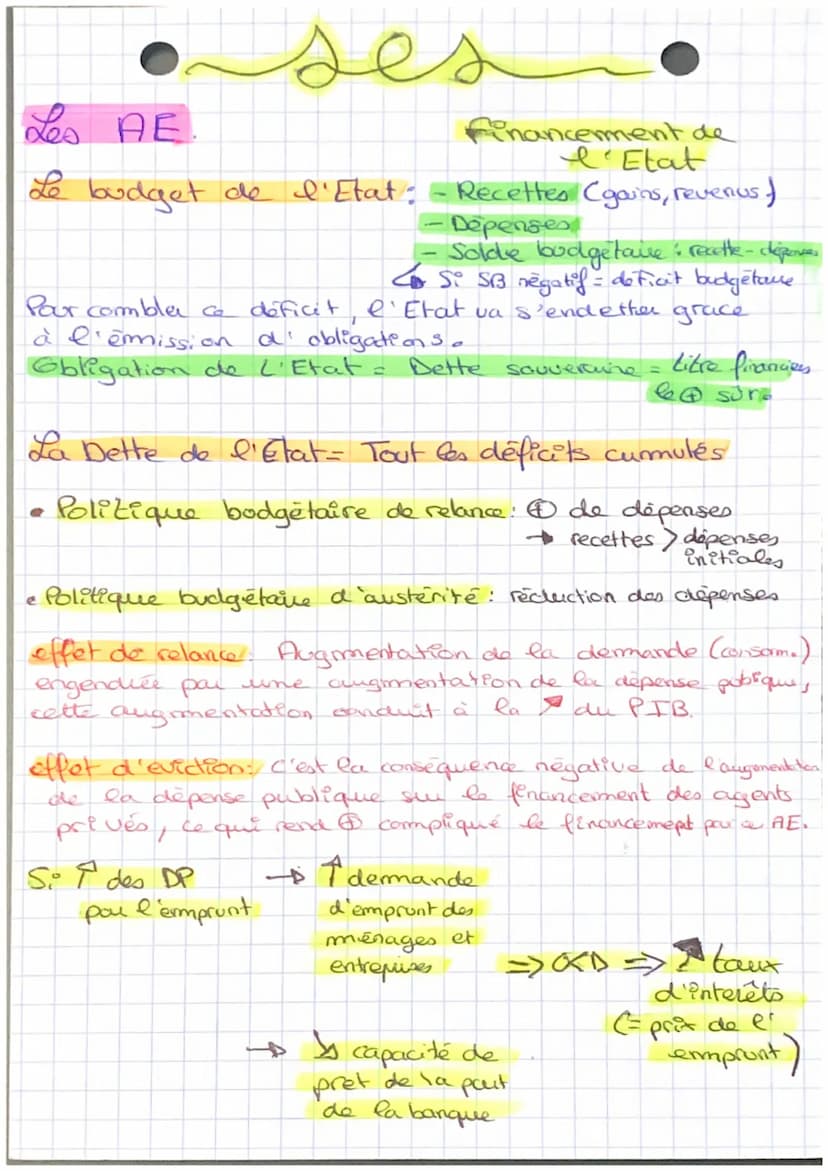 ses
Les AE.
Financement de
l'Etat
Le budget de l'Etat : - Recettes (gains, revenus)
- Dépenses
- Solde budgétaire : recette - dépenses
↳ Si SB négatif = déficit budgétaire
Par combler ce déficit, l'Etat va s'endetter grace
à l'émission d'obligations.
Obligation de L'Etat = Dette souveraine = titre financiers
le ⊕ sûr.
La Dette de l'État = Tout les déficits cummulés
• Politique budgétaire de relance : ⊕ de dépenses
→ recettes > dépenses
initiales
• Politique budgétaire d'austérité : réduction des dépenses
effet de relance : Augmentation de la demande (consom.)
engendrée par une augmentation de la dépense publique,
cette augmentation conduit à la ↗ du PIB.
effet d'eviction : c'est la conséquence négative de l'augmentation
de la dépense publique sur le financement des agents
privés, ce qui rend ⊕ compliqué le financement par a AE.
Si ↑ des DP
pour l'emprunt
→ ↑ demande
d'emprunt des
ménages et
entreprises
=> O<D => ↗ taux
d'interêts
(= prix de l'
emprunt)
→ ↘ capacité de
pret de la part
de la banque